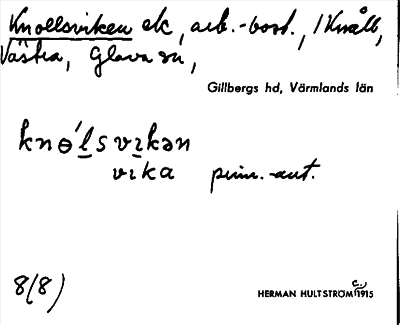 Knollsviken etc, arb.-bost., i Knöll,
Västra, Glava sn,
Gillbergs hd, Värmlands län
knɵ́lsvikən
vika prim.-aut.
8(8)
HERMAN HULTSTRÖM c:a 1915